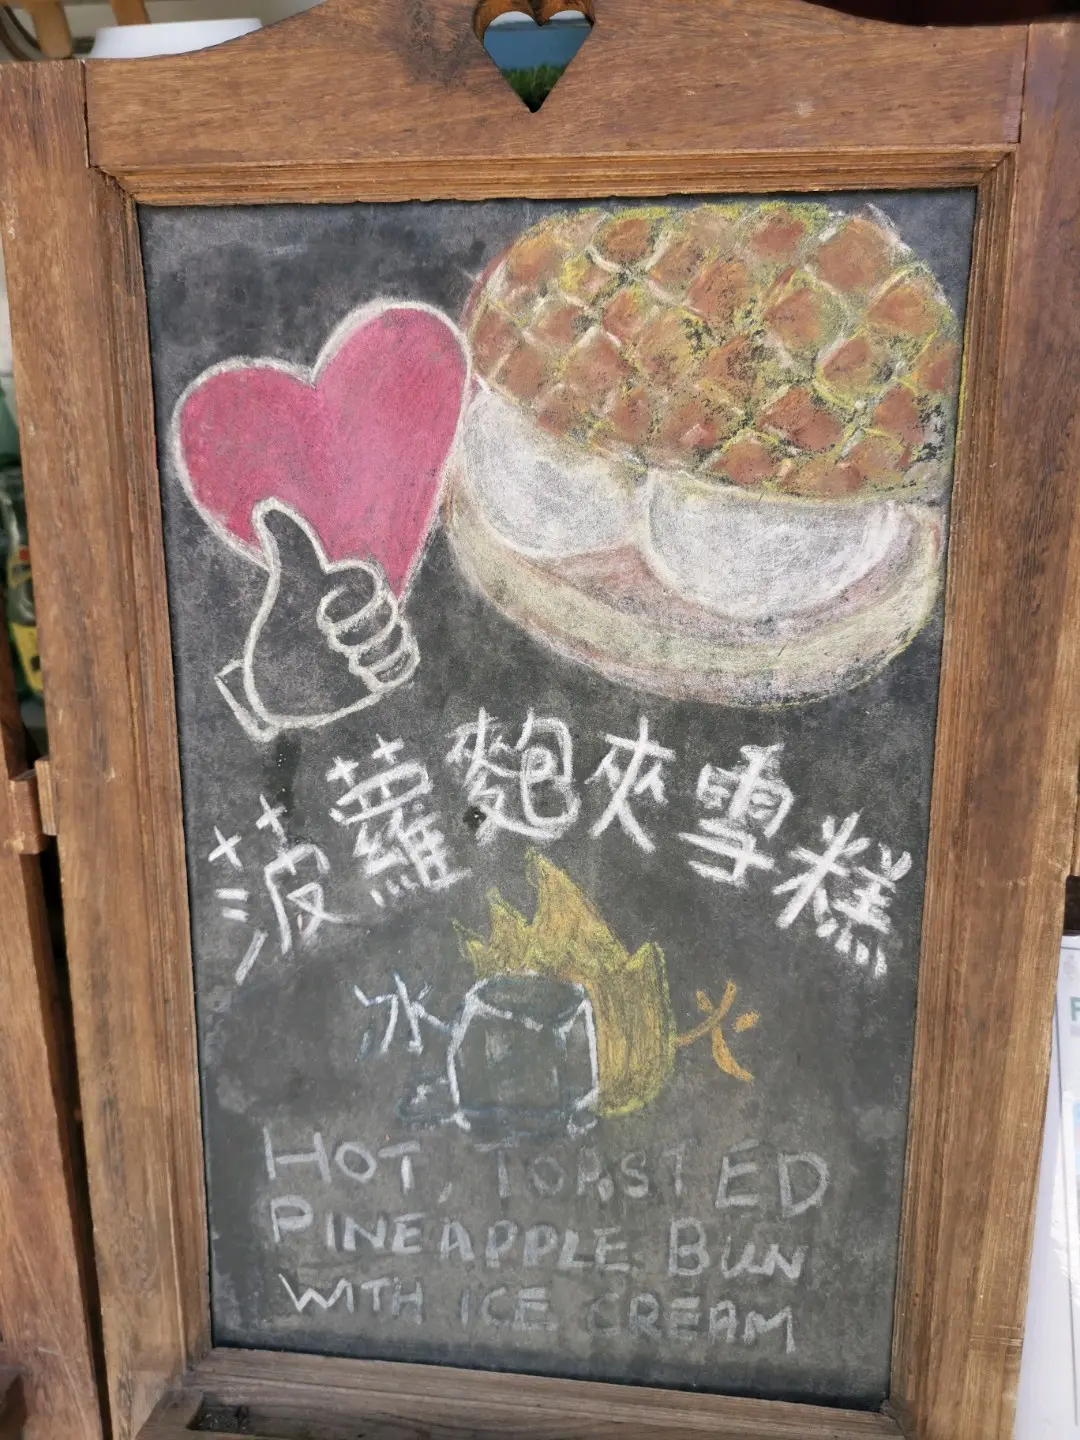 菠蘿麭夾雪糕
冰 火
HOT, TOASTED
PINEAPPLE BUN
WITH ICE CREAM